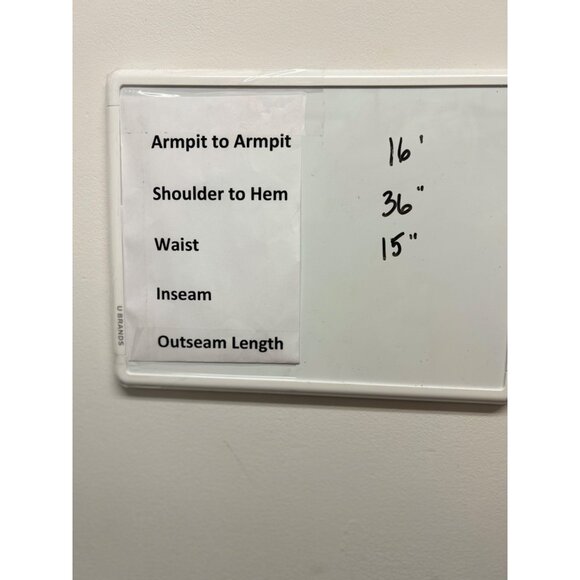 Armpit to Armpit 16'
Shoulder to Hem 36"
Waist 15"
Inseam
Outseam Length
U BRANDS